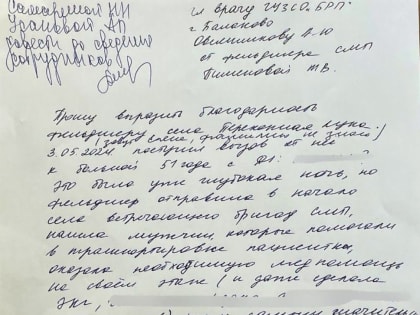 Самариной НН
Ураловой АП
довести до сведения
сотрудников
гл врачу ГУЗ СО "БРП"
г. Балаково
Овсянникову А.Ю
от фельдшера СМП
Пименовой Т.В.
Прошу выразить благодарность
фельдшеру села Перекопная Лука
(зовут Елена, фамилии не знаю)
3.05.2024 поступил вызов от неё
к больной 51 года с Ds:
Это было уже глубокая ночь, но
фельдшер отправила в начало
села встречающего бригаду СМП,
нашла мужчин, которые помогали
в транспортировке пациентки,
оказала необходимую медпомощь
на своём этапе (и даже сделала
ЭКГ,